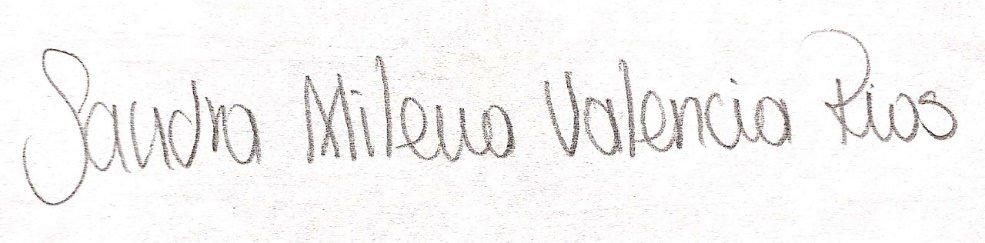 Sandra Milena Valencia Rios